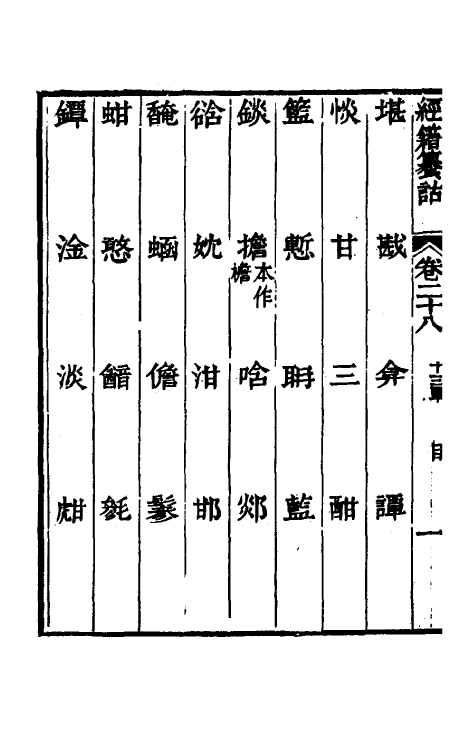 經籍籑詁 卷二十八 十三覃 目 一
堪 戡 弇 譚
惔 甘 三 酣
籃 慙 聃 藍
錟 擔本作檐 唅 郯
谽 妉 泔 邯
醃 蛔 儋 鬖
蚶 憨 㲜
鐔 淦 淡 甝